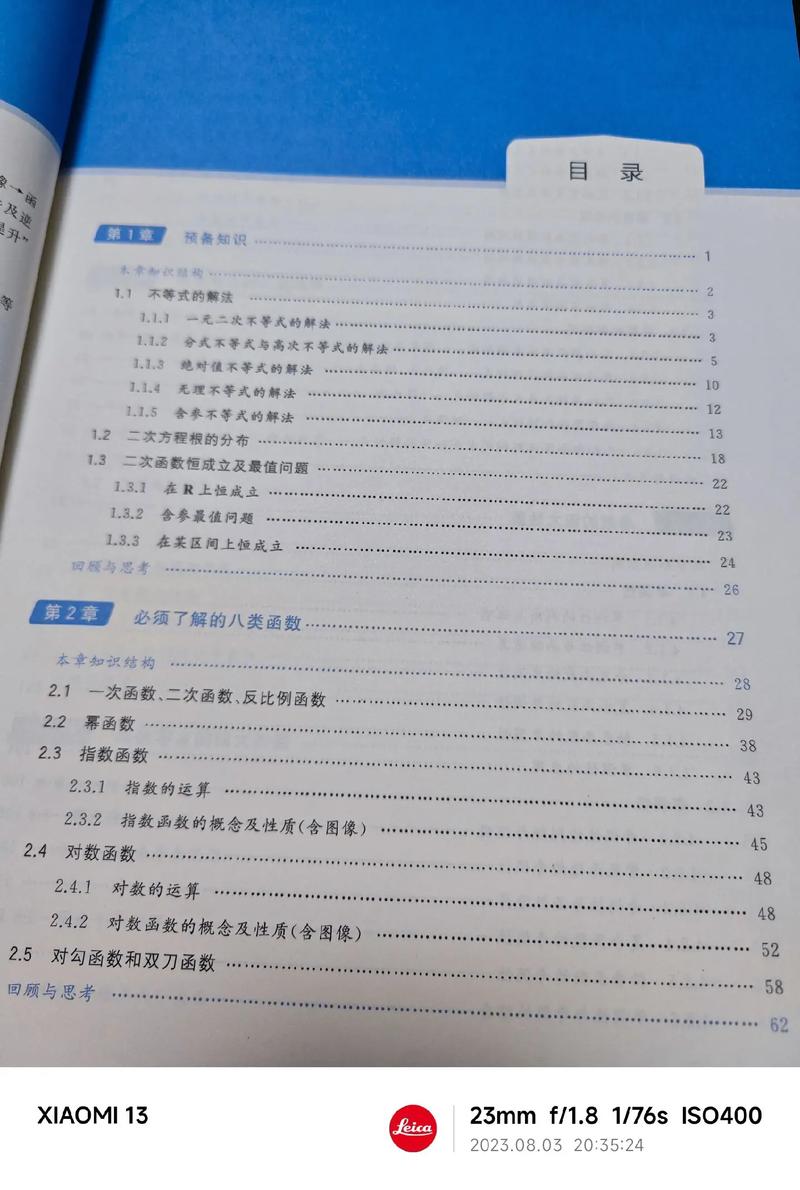 像→函
及逆
提升”
等
目 录
第1章 预备知识 1
本章知识结构 2
1.1 不等式的解法 3
1.1.1 一元二次不等式的解法 3
1.1.2 分式不等式与高次不等式的解法 5
1.1.3 绝对值不等式的解法 10
1.1.4 无理不等式的解法 12
1.1.5 含参不等式的解法 13
1.2 二次方程根的分布 18
1.3 二次函数恒成立及最值问题 22
1.3.1 在R上恒成立 22
1.3.2 含参最值问题 23
1.3.3 在某区间上恒成立 24
回顾与思考 26
第2章 必须了解的八类函数 27
本章知识结构 28
2.1 一次函数、二次函数、反比例函数 29
2.2 幂函数 38
2.3 指数函数 43
2.3.1 指数的运算 43
2.3.2 指数函数的概念及性质(含图像) 45
2.4 对数函数 48
2.4.1 对数的运算 48
2.4.2 对数函数的概念及性质(含图像) 52
2.5 对勾函数和双刀函数 58
回顾与思考 62
XIAOMI 13
Leica
23mm f/1.8 1/76s ISO400
2023.08.03 20:35:24